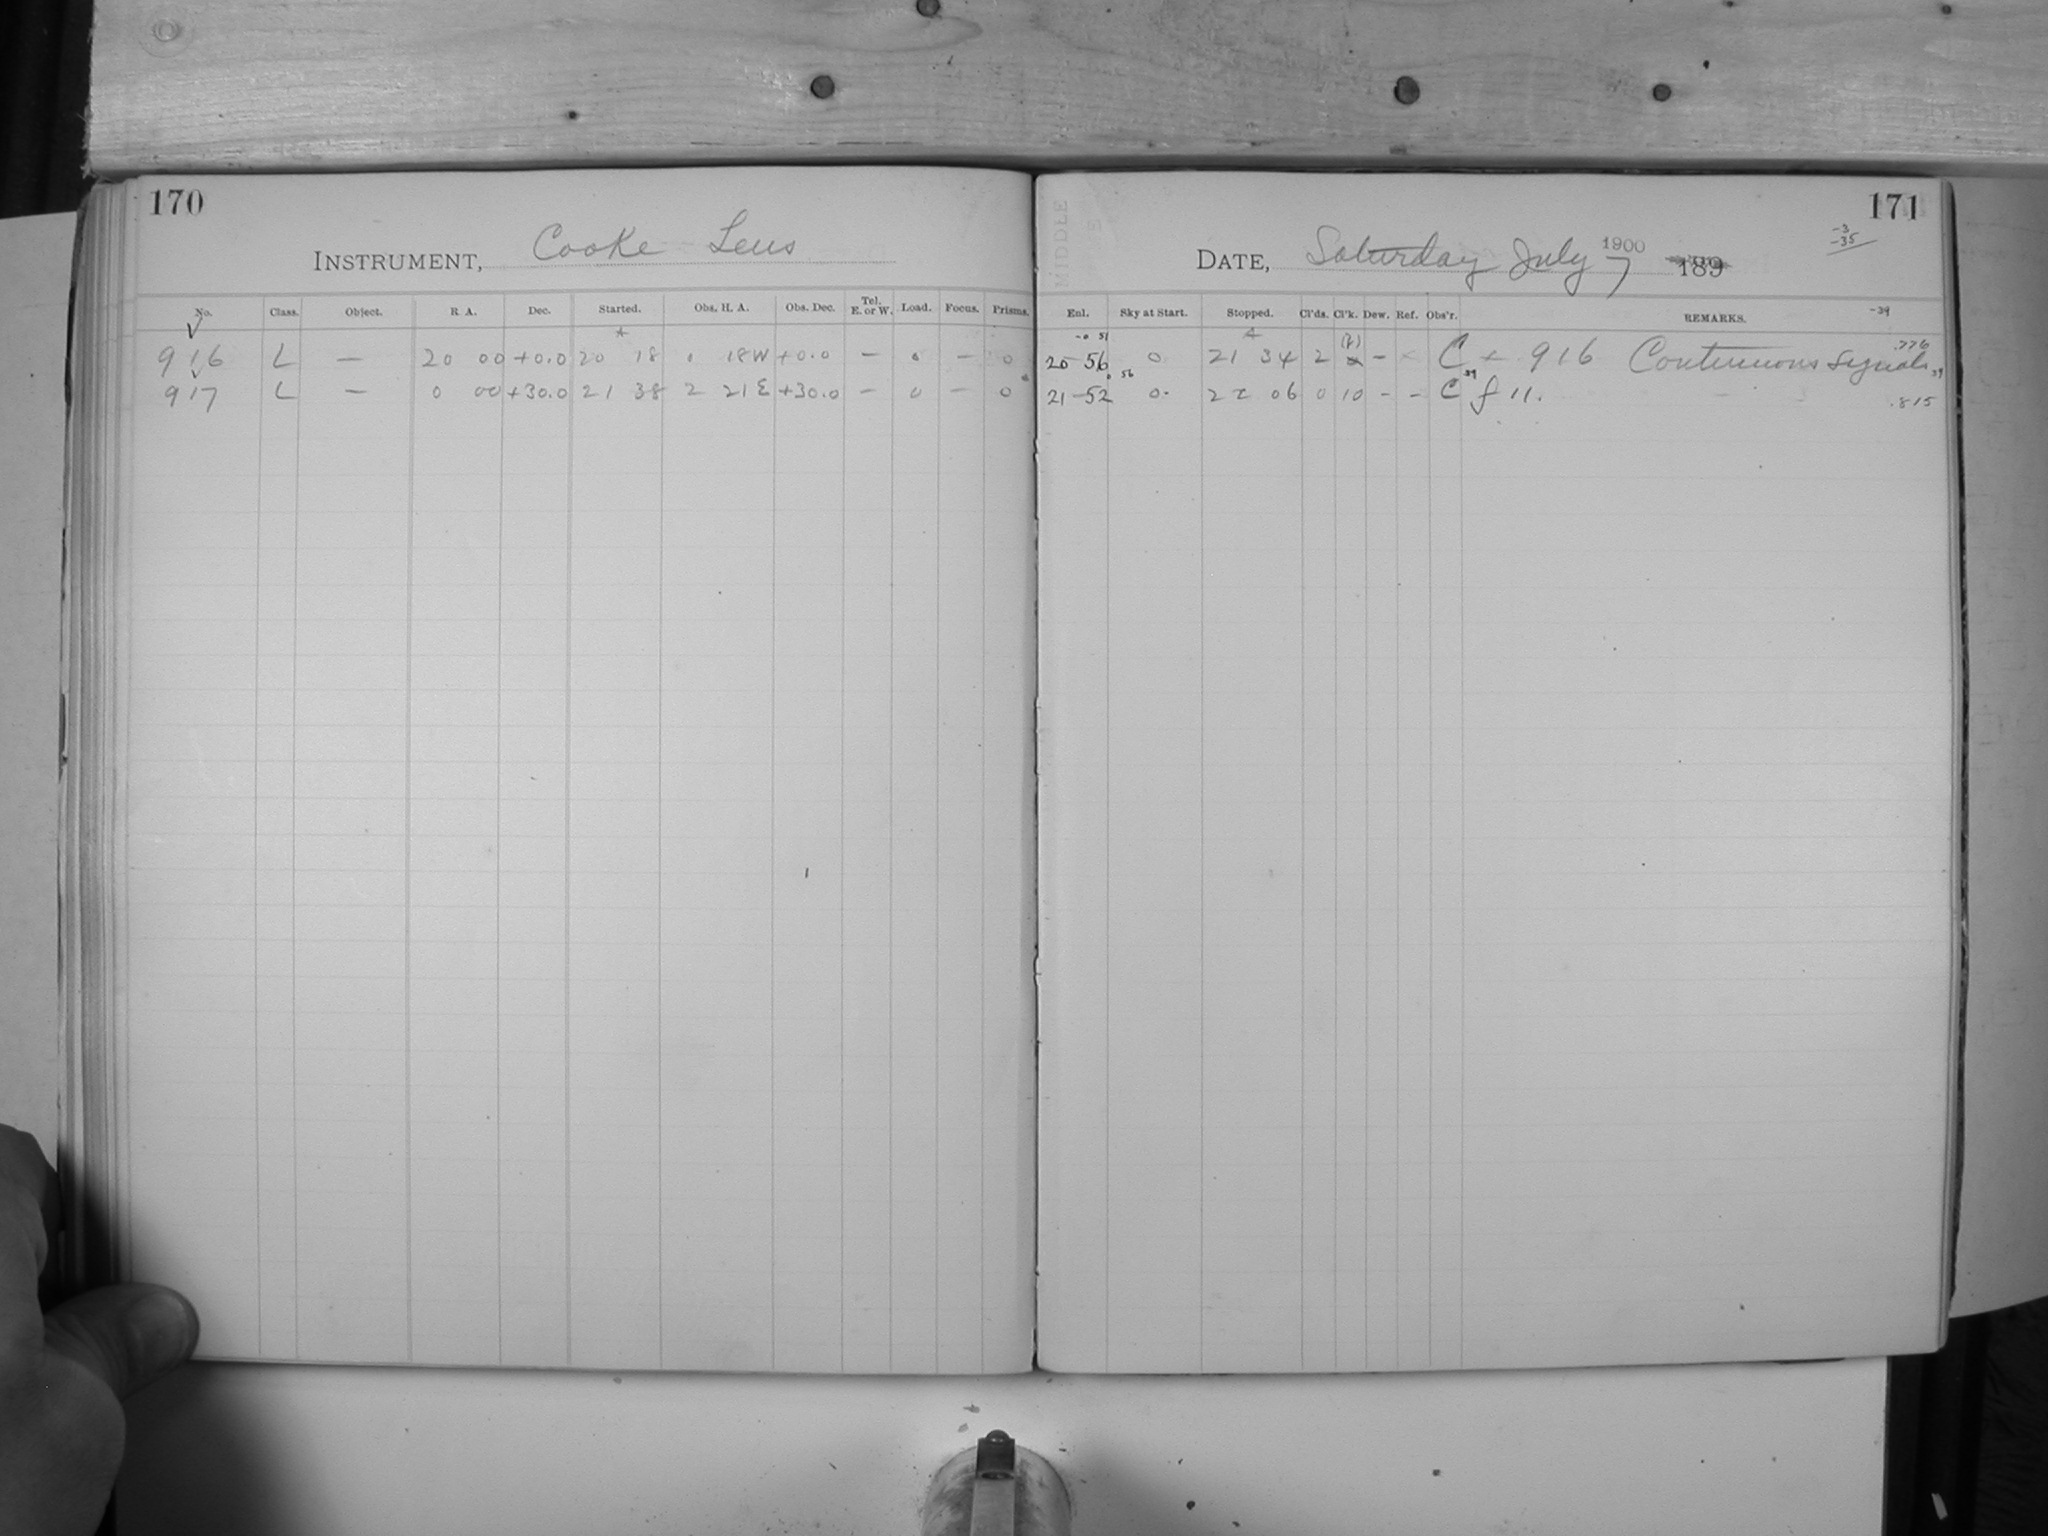 170
INSTRUMENT, Cooke Lens
No. Class. Object. R A. Dec. Started. Obs. H. A. Obs. Dec. Tel. E. or W. Load. Focus. Prisms.
916 L — 20 00 +0.0 20 18 0 18W +0.0 — 0 — 0
917 L — 0 00 +30.0 21 38 2 21E +30.0 — 0 — 0
171
-3
-35
DATE, Saturday July 7 1900 189
Enl. Sky at Start. Stopped. Cl'ds. Cl'k. Dew. Ref. Obs'r. REMARKS. -39
-0 51
20-56 0 21 34 2 - C 916 Continuous signals .776
56
21-52 0 22 06 0 10 - - C f 11. .815
39
39